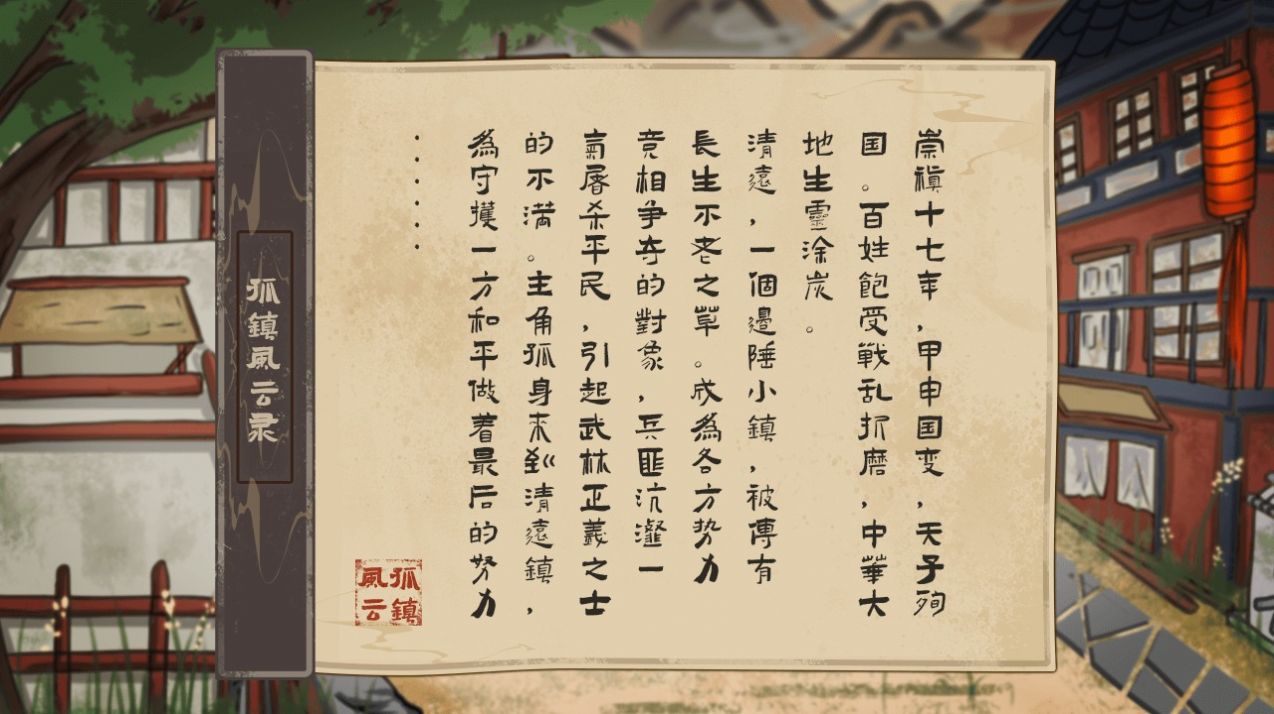 崇禎十七年，甲申国变，天子殉
国。百姓飽受戰乱折磨，中華大
地生靈涂炭。
清遠，一個邊陲小鎮，被傳有
長生不老之草。成為各方势力
竞相争夺的對象，兵匪沆瀣一
氣屠杀平民，引起武林正義之士
的不满。主角孤身来到清遠鎮，
為守獲一方和平做着最后的努力
......
孤鎮
風云
孤鎮風云录